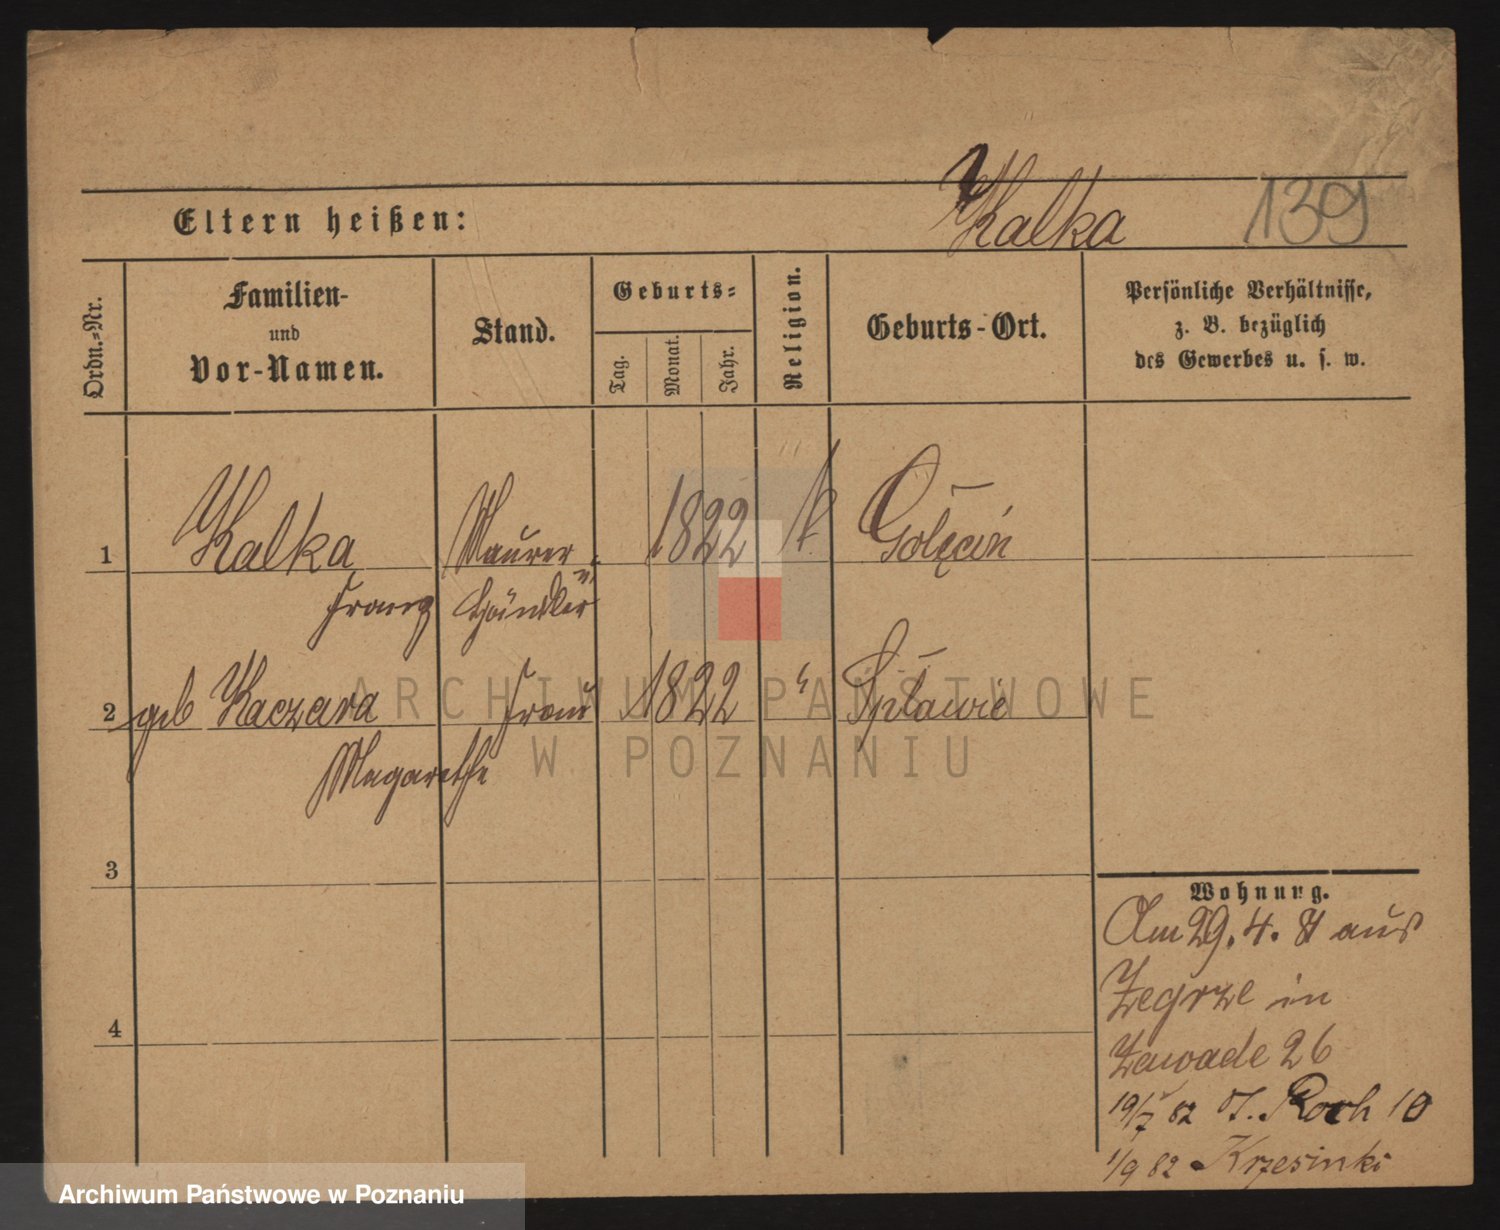 Kalka 139
Eltern heißen:
Ordn.-Nr.
Familien-
und
Vor-Namen.
Stand.
Geburts-
Tag.
Monat.
Jahr.
Religion.
Geburts-Ort.
Persönliche Verhältnisse,
z. B. bezüglich
des Gewerbes u. s. w.
1 Kalka Maurer u. 1822 k Golęcin
Franz Händler
2 geb Kaczara Frau 1822 " Spławie
Magarethe
3
4
Wohnung.
Am 29. 4. 81 aus
Zegrze in
Zawade 26
19/7 82 St. Roch 10
1/9 82 Krzesinki
ARCHIWUM PAŃSTWOWE
W POZNANIU
Archiwum Państwowe w Poznaniu